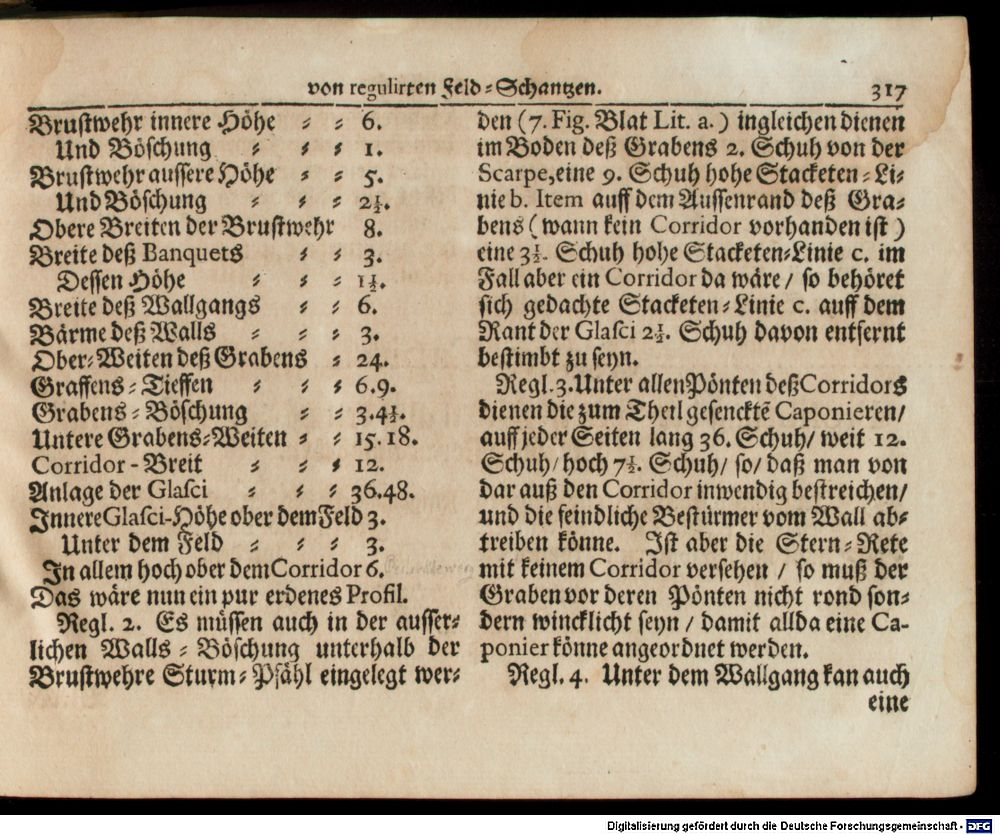 von regulirten Feld-Schantzen.
317
Brustwehr innere Höhe - - 6.
Und Böschung - - - 1.
Brustwehr aussere Höhe - - 5.
Und Böschung - - - 2½.
Obere Breiten der Brustwehr 8.
Breite deß Banquets - - 3.
Dessen Höhe - - - 1½.
Breite deß Wallgangs - - 6.
Bärme deß Walls - - - 3.
Ober-Weiten deß Grabens - 24.
Graffens-Tieffen - - - 6.9.
Grabens-Böschung - - 3.4½.
Untere Grabens-Weiten - - 15.18.
Corridor-Breit - - - 12.
Anlage der Glasci - - - 36.48.
Innere Glasci-Höhe ober dem Feld 3.
Unter dem Feld - - - 3.
In allem hoch ober dem Corridor 6.
Das wäre nun ein pur erdenes Profil.
Regl. 2. Es müssen auch in der ausser-
lichen Walls-Böschung unterhalb der
Brustwehre Sturm-Pfähl eingelegt wer-
den (7. Fig. Blat Lit. a.) ingleichen dienen
im Boden deß Grabens 2. Schuh von der
Scarpe, eine 9. Schuh hohe Stacketen-Li-
nie b. Item auff dem Aussenrand deß Gra-
bens (wann kein Corridor vorhanden ist)
eine 3½. Schuh hohe Stacketen-Linie c. im
Fall aber ein Corridor da wäre / so behöret
sich gedachte Stacketen-Linie c. auff dem
Rant der Glasci 2½. Schuh davon entfernt
bestimbt zu seyn.
Regl. 3. Unter allen Pönten deß Corridors
dienen die zum Theil gesenckte͂ Caponieren/
auff jeder Seiten lang 36. Schuh/ weit 12.
Schuh/ hoch 7½. Schuh/ so/ daß man von
dar auß den Corridor inwendig bestreichen/
und die feindliche Bestürmer vom Wall ab-
treiben könne. Ist aber die Stern-Rete
mit keinem Corridor versehen / so muß der
Graben vor deren Pönten nicht rond son-
dern wincklicht seyn / damit allda eine Ca-
ponier könne angeordnet werden.
Regl. 4. Unter dem Wallgang kan auch
eine
Digitalisierung gefördert durch die Deutsche Forschungsgemeinschaft - DFG